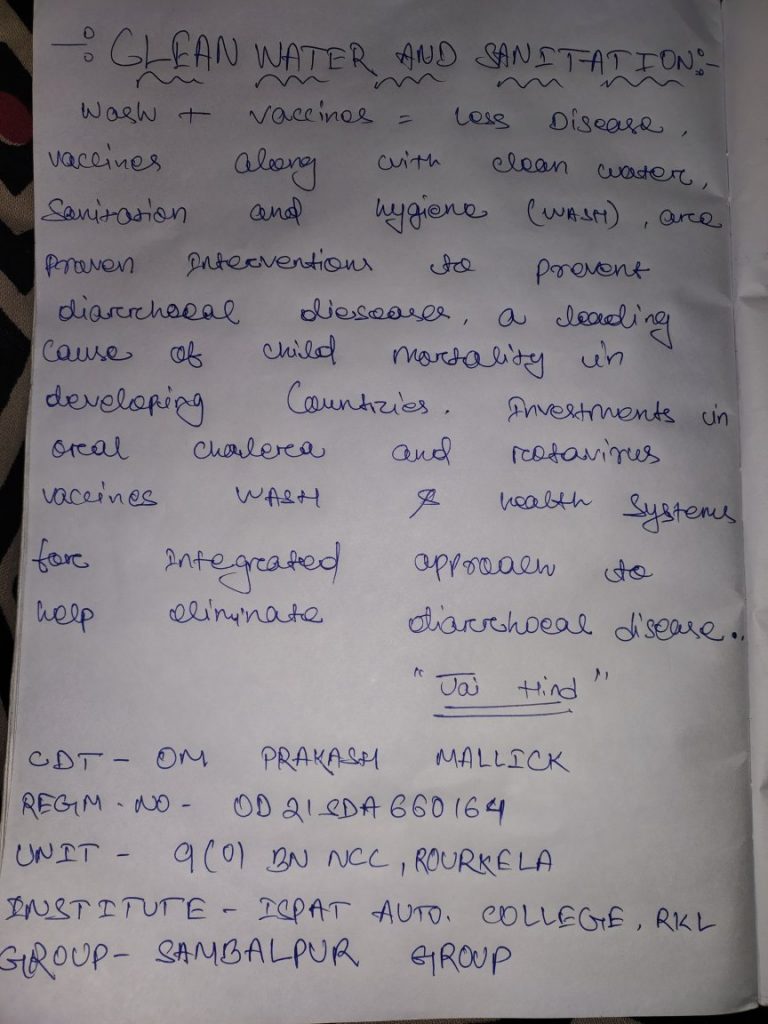 -: CLEAN WATER AND SANITATION:-
Wash + vaccines = Less Disease,
vaccines along with clean water,
Sanitation and hygiene (WASH), are
Proven Interventions to prevent
diarrhoeal dieseases, a leading
cause of child mortality in
developing Countries. Investments in
oral cholera and rotavirus
vaccines WASH & health Systems
for Integrated approach to
help eliminate diarrhoeal disease..
"Jai Hind"
CDT - OM PRAKASH MALLICK
REGM. NO - OD21SDA660164
UNIT - 9(O) BN NCC, ROURKELA
INSTITUTE - ISPAT AUTO. COLLEGE, RKL
GROUP- SAMBALPUR GROUP